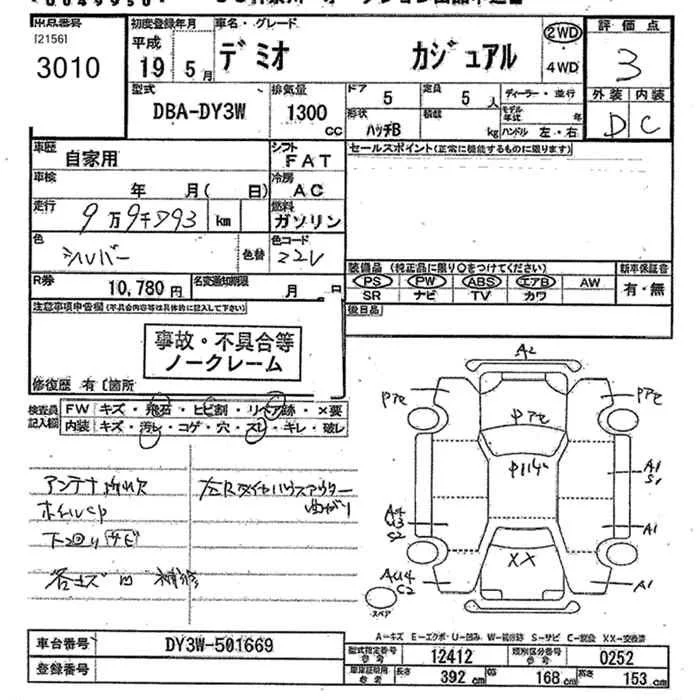 出品番号 初度登録年月 車名・グレード 評価点
[2156]
3010 平成 19 5月 デミオ カジュアル 2WD 4WD 3
型式 排気量 ドア 定員 ディーラー・並行 外装 内装
DBA-DY3W 1300 CC 5 5人 モデル年式 年 D C
形状 積載
ハッチB kg ハンドル 左・右
車歴 自家用 シフト FAT セールスポイント(正常に機能するものに限ります)
車検 年 月( 日) 冷房 AC
走行 9万9千793 km 燃料 ガソリン
色 シルバー 色替 色コード 22V
装備品 (純正品に限り○をつけてください) 新車保証書
PS PW ABS エアB AW 有・無
SR ナビ TV カワ
R券 10,780円 名変通知期限 月 日
後日品
注意事項申告欄(不具合内容等は具体的に記入して下さい)
事故・不具合等
ノークレーム
修復歴 有〔箇所
検査員記入欄 FW キズ・飛石・ヒビ割・リペア跡・×要
内装 キズ・汚レ・コゲ・穴・スレ・キレ・破レ
アンテナ
下回りサビ
A2
A1
S1
A4
U3
S2
A1
XX
AU4
C2
A1
スペア
A-キズ E-エクボ U-凹み W-補修跡 S-サビ C-腐蝕 XX-交換済
車台番号 DY3W-501669 型式指定番号 参考 12412 類別区分番号 参考 0252
登録番号 車庫証明用 参考 長さ 392 cm 幅 168 cm 高さ 153 cm